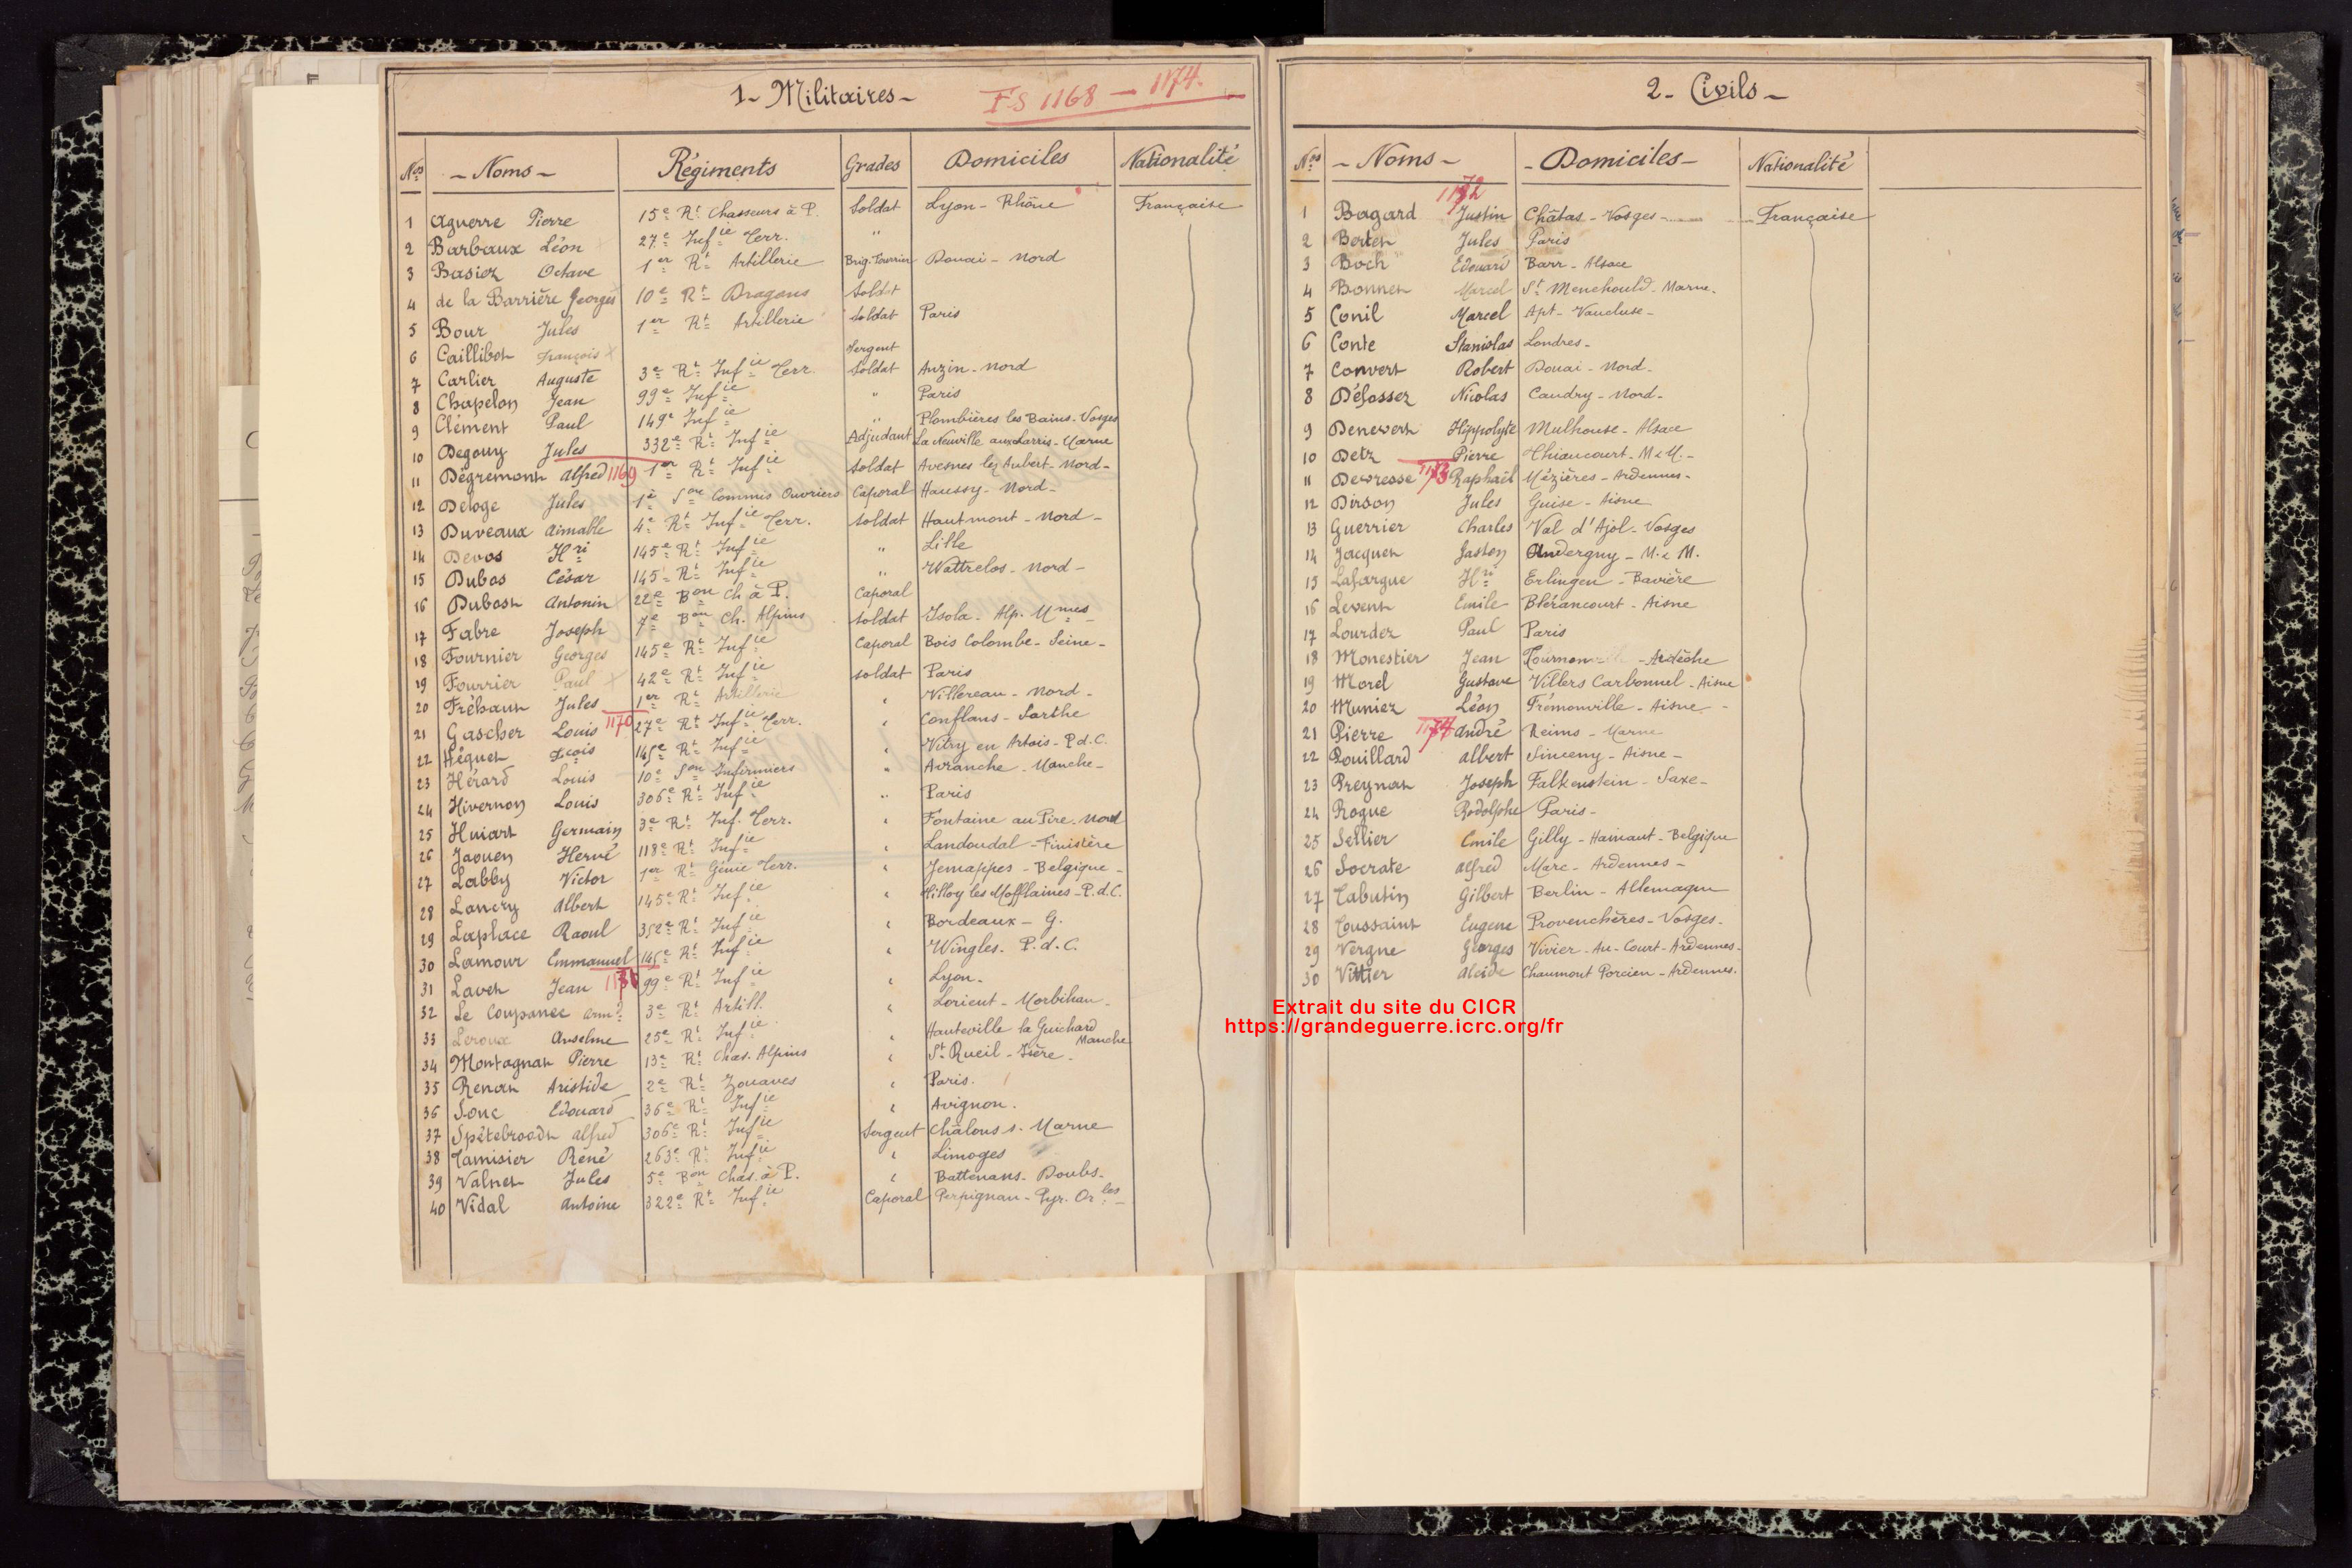 1 - Militaires -
FS 1168 - 1174.
Nos - Noms - Régiments Grades Domiciles Nationalité
1 Aguerre Pierre 15e Rt Chasseurs à P. Soldat Lyon - Rhône Française
2 Barbaux Léon 27e Infie Terr. "
3 Basiez Octave 1er Rt Artillerie Brig. Fourrier Douai - Nord
4 de la Barrière Georges 10e Rt Dragons Soldat
5 Bour Jules 1er Rt Artillerie Soldat Paris
6 Caillibot François Sergent
7 Carlier Auguste 3e Rt Infie Terr. Soldat Anzin - Nord
8 Chapelon Jean 99e Infie " Paris
9 Clément Paul 149e Infie " Plombières les Bains - Vosges
10 Degouy Jules 332e Rt Infie Adjudant La Neuville aux Larris - Marne
11 Dégremont Alfred 1169 1er Rt Infie Soldat Avesnes lez Aubert - Nord -
12 Deloge Jules 1e Son Commis Ouvriers Caporal Haussy - Nord -
13 Duveaux Aimable 4e Rt Infie Terr. Soldat Hautmont - Nord -
14 Devos Hri 145e Rt Infie " Lille
15 Dubos César 145e Rt Infie " Wattrelos - Nord -
16 Dubost Antonin 22e Bon Ch à P. Caporal
17 Fabre Joseph 7e Bon Ch. Alpins Soldat Isola - Alp. Mmes -
18 Fournier Georges 145e Rt Infie Caporal Bois Colombe - Seine -
19 Fourrier Paul 42e Rt Infie soldat Paris
20 Fréhaut Jules 1er Rt Artillerie " Villereau - Nord -
21 Gascher Louis 1170 27e Rt Infie Terr. " Conflans - Sarthe
22 Héquet Fçois 145e Rt Infie " Vitry en Artois - P.d.C.
23 Hérard Louis 10e Son Infirmiers " Avranche - Manche -
24 Hivernon Louis 306e Rt Infie " Paris
25 Huiart Germain 3e Rt Inf. Terr. " Fontaine au Pire - Nord
26 Jaouen Hervé 118e Rt Infie " Landoudal - Finistère
27 Labby Victor 1er Rt Génie Terr. " Jemappes - Belgique -
28 Lancry Albert 145e Rt Infie " Tilloy les Mofflaines - P.d.C.
29 Laplace Raoul 352e Rt Infie " Bordeaux - G.
30 Lamour Emmanuel 145e Rt Infie " Wingles. P.d.C.
31 Lavet Jean 1171 99e Rt Infie " Lyon -
32 Le Coupanec Armd 3e Rt Artill. " Lorient - Morbihan -
33 Leroux Anselme 25e Rt Infie " Hauteville la Guichard Manche
34 Montagnat Pierre 13e Rt Chas. Alpins " St Rueil - Isère -
35 Renan Aristide 2e Rt Zouaves " Paris.
36 Sonc Edouard 36e Rt Infie " Avignon.
37 Spétebroodt Alfred 306e Rt Infie Sergent Châlons s. Marne
38 Tamisier René 263e Rt Infie " Limoges
39 Valnet Jules 5e Bon Chas. à P. " Battenans - Doubs -
40 Vidal Antoine 322e Rt Infie Caporal Perpignan - Pyr. Orles -
2 - Civils -
Nos - Noms - - Domiciles - Nationalité
1172
1 Bagard Justin Châtas - Vosges - Française
2 Berten Jules Paris
3 Boch Edouard Barr - Alsace
4 Bonnet Marcel St Menehould - Marne.
5 Conil Marcel Apt - Vaucluse -
6 Conte Stanislas Londres -
7 Convert Robert Douai - Nord -
8 Défossez Nicolas Caudry - Nord -
9 Denewert Hippolyte Mulhouse - Alsace
10 Detz Pierre Thiaucourt - M & M. -
11 Devresse 1173 Raphaël Mézières - Ardennes -
12 Dirson Jules Guise - Aisne
13 Guerrier Charles Val d'Ajol - Vosges
14 Jacquet Gaston Anderguy - M. & M.
15 Lafargue Hri Erlingen - Bavière
16 Levent Emile Blérancourt - Aisne
17 Lourdez Paul Paris
18 Monestier Jean Tournon - Ardèche
19 Morel Gustave Villers Carbonnel - Aisne
20 Muniez Léon Frémonville - Aisne -
21 Pierre 1174 André Reims - Marne
22 Pouillard Albert Sinceny - Aisne -
23 Preynat Joseph Falkenstein - Saxe -
24 Rogue Rodolphe Paris -
25 Sellier Emile Gilly - Hainaut - Belgique
26 Socrate Alfred Marc - Ardennes -
27 Tabutin Gilbert Berlin - Allemagne
28 Toussaint Eugene Provenchères - Vosges -
29 Vergne Georges Vivier - Au - Court - Ardennes -
30 Vittier Alcide Chaumont Porcien - Ardennes.
Extrait du site du CICR
https://grandeguerre.icrc.org/fr